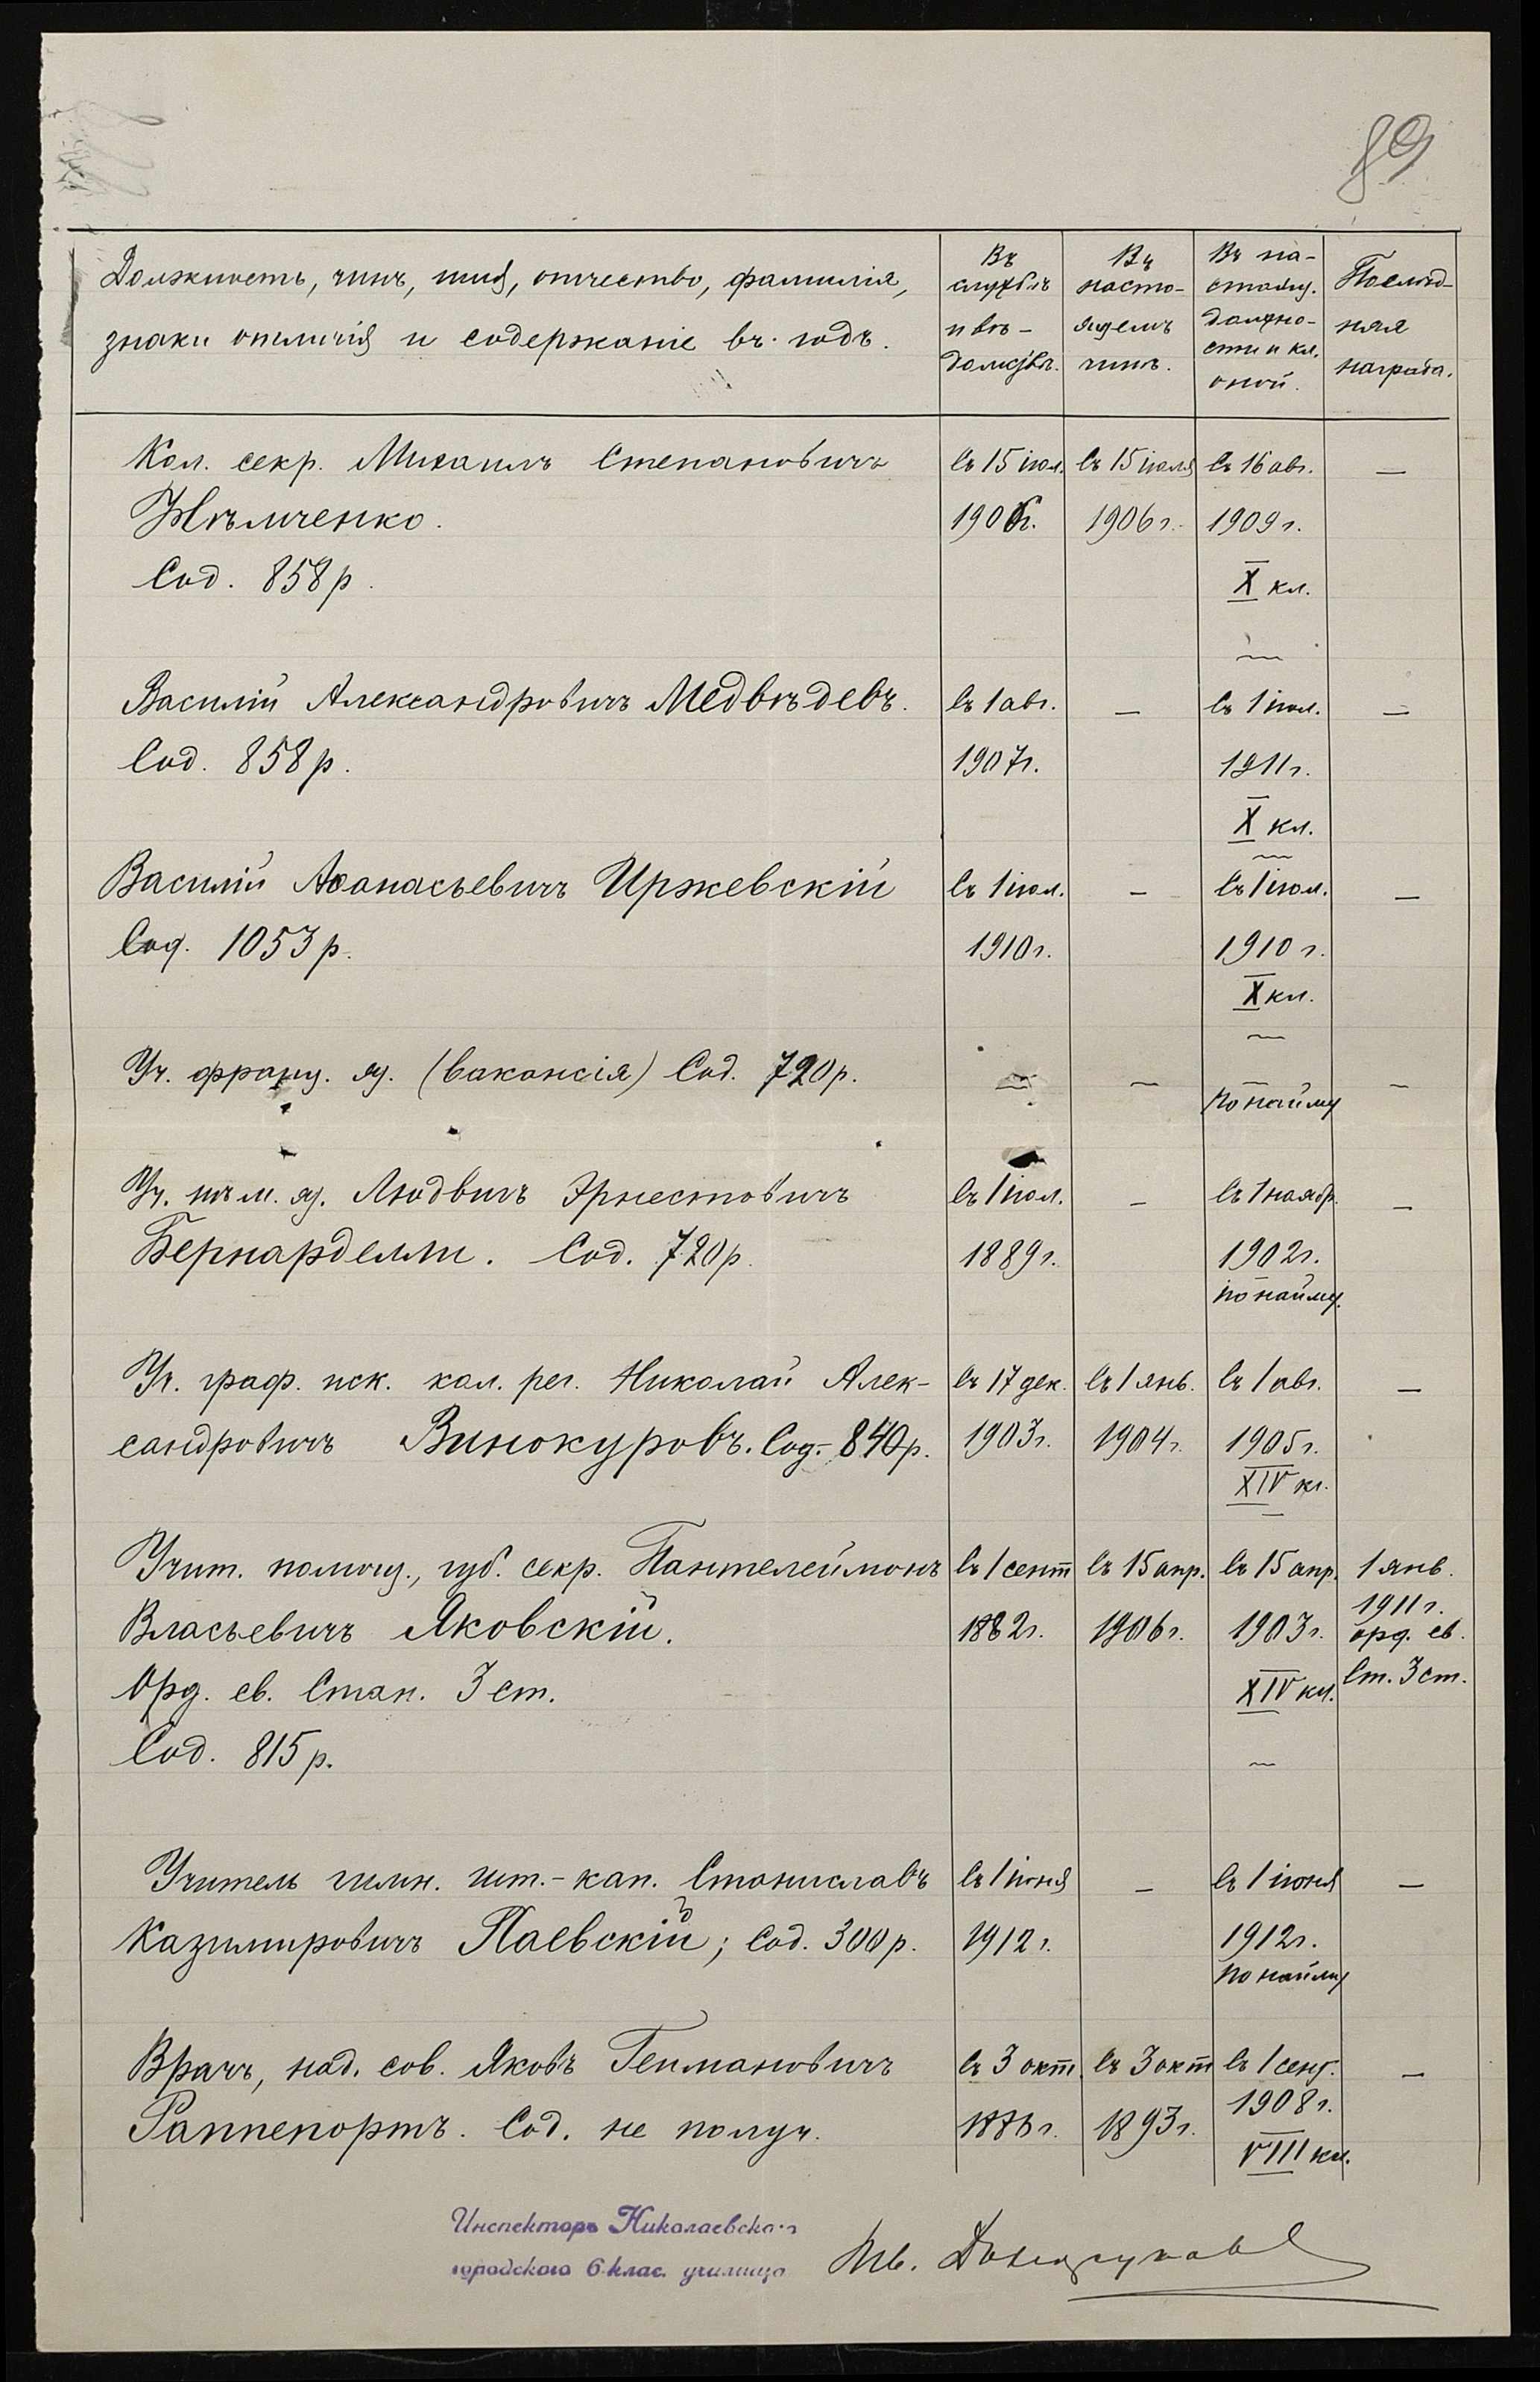 89
Должность, чинъ, имя, отчество, фамилія,
знаки отличія и содержаніе въ годъ.
Въ
службѣ
и вѣ-
домствѣ.
Въ
насто-
ящемъ
чинѣ.
Въ на-
стоящ.
должно-
сти и кл.
оной.
Послѣд-
няя
награда.
Кол. секр. Михаилъ Степановичъ
Нѣмченко.
Сод. 858 р.
Съ 15 іюл.
1906г.
Съ 15 іюля
1906 г.
Съ 16 авг.
1909 г.
X кл.
—
Василій Александровичъ Медвѣдевъ.
Сод. 858 р.
Съ 1 авг.
1907г.
—
Съ 1 іюл.
1911г.
X кл.
—
Василій Аѳанасьевичъ Иржевскій
Сод. 1053 р.
Съ 1 іюл.
1910г.
—
Съ 1 іюл.
1910 г.
X кл.
—
Уч. франц. яз. (вакансія) Сод. 720р.
—
—
—
по найму
—
Уч. нѣм. яз. Людвигъ Эрнестовичъ
Бернарделли. Сод. 720р.
Съ 1 іюл.
1889г.
—
Съ 1 ноябр.
1902г.
по найму.
—
Уч. граф. иск. кол. рег. Николай Алек-
сандровичъ Винокуровъ. Сод. 840р.
Съ 17 дек.
1903г.
Съ 1 янв.
1904г.
Съ 1 авг.
1905г.
XIV кл.
—
Учит. помощ., губ. секр. Пантелеймонъ
Власьевичъ Яковскій.
Орд. св. Стан. 3 ст.
Сод. 815 р.
Съ 1 сент
1882г.
Съ 15 апр.
1906г.
Съ 15 апр.
1903г.
XIV кл.
1 янв.
1911 г.
орд. св.
Ст. 3 ст.
Учитель гимн. шт.-кап. Станиславъ
Казимировичъ Паевскій; Сод. 300 р.
Съ 1 іюня
1912 г.
—
Съ 1 іюня
1912г.
по найму
—
Врачъ, над. сов. Яковъ Гепмановичъ
Раппепортъ. Сод. не получ.
Съ 3 окт.
Съ 3 окт
1893г.
Съ 1 сент.
1908г.
VIII кл.
—
Инспекторъ Николаевскаго
городского 6 клас. училища